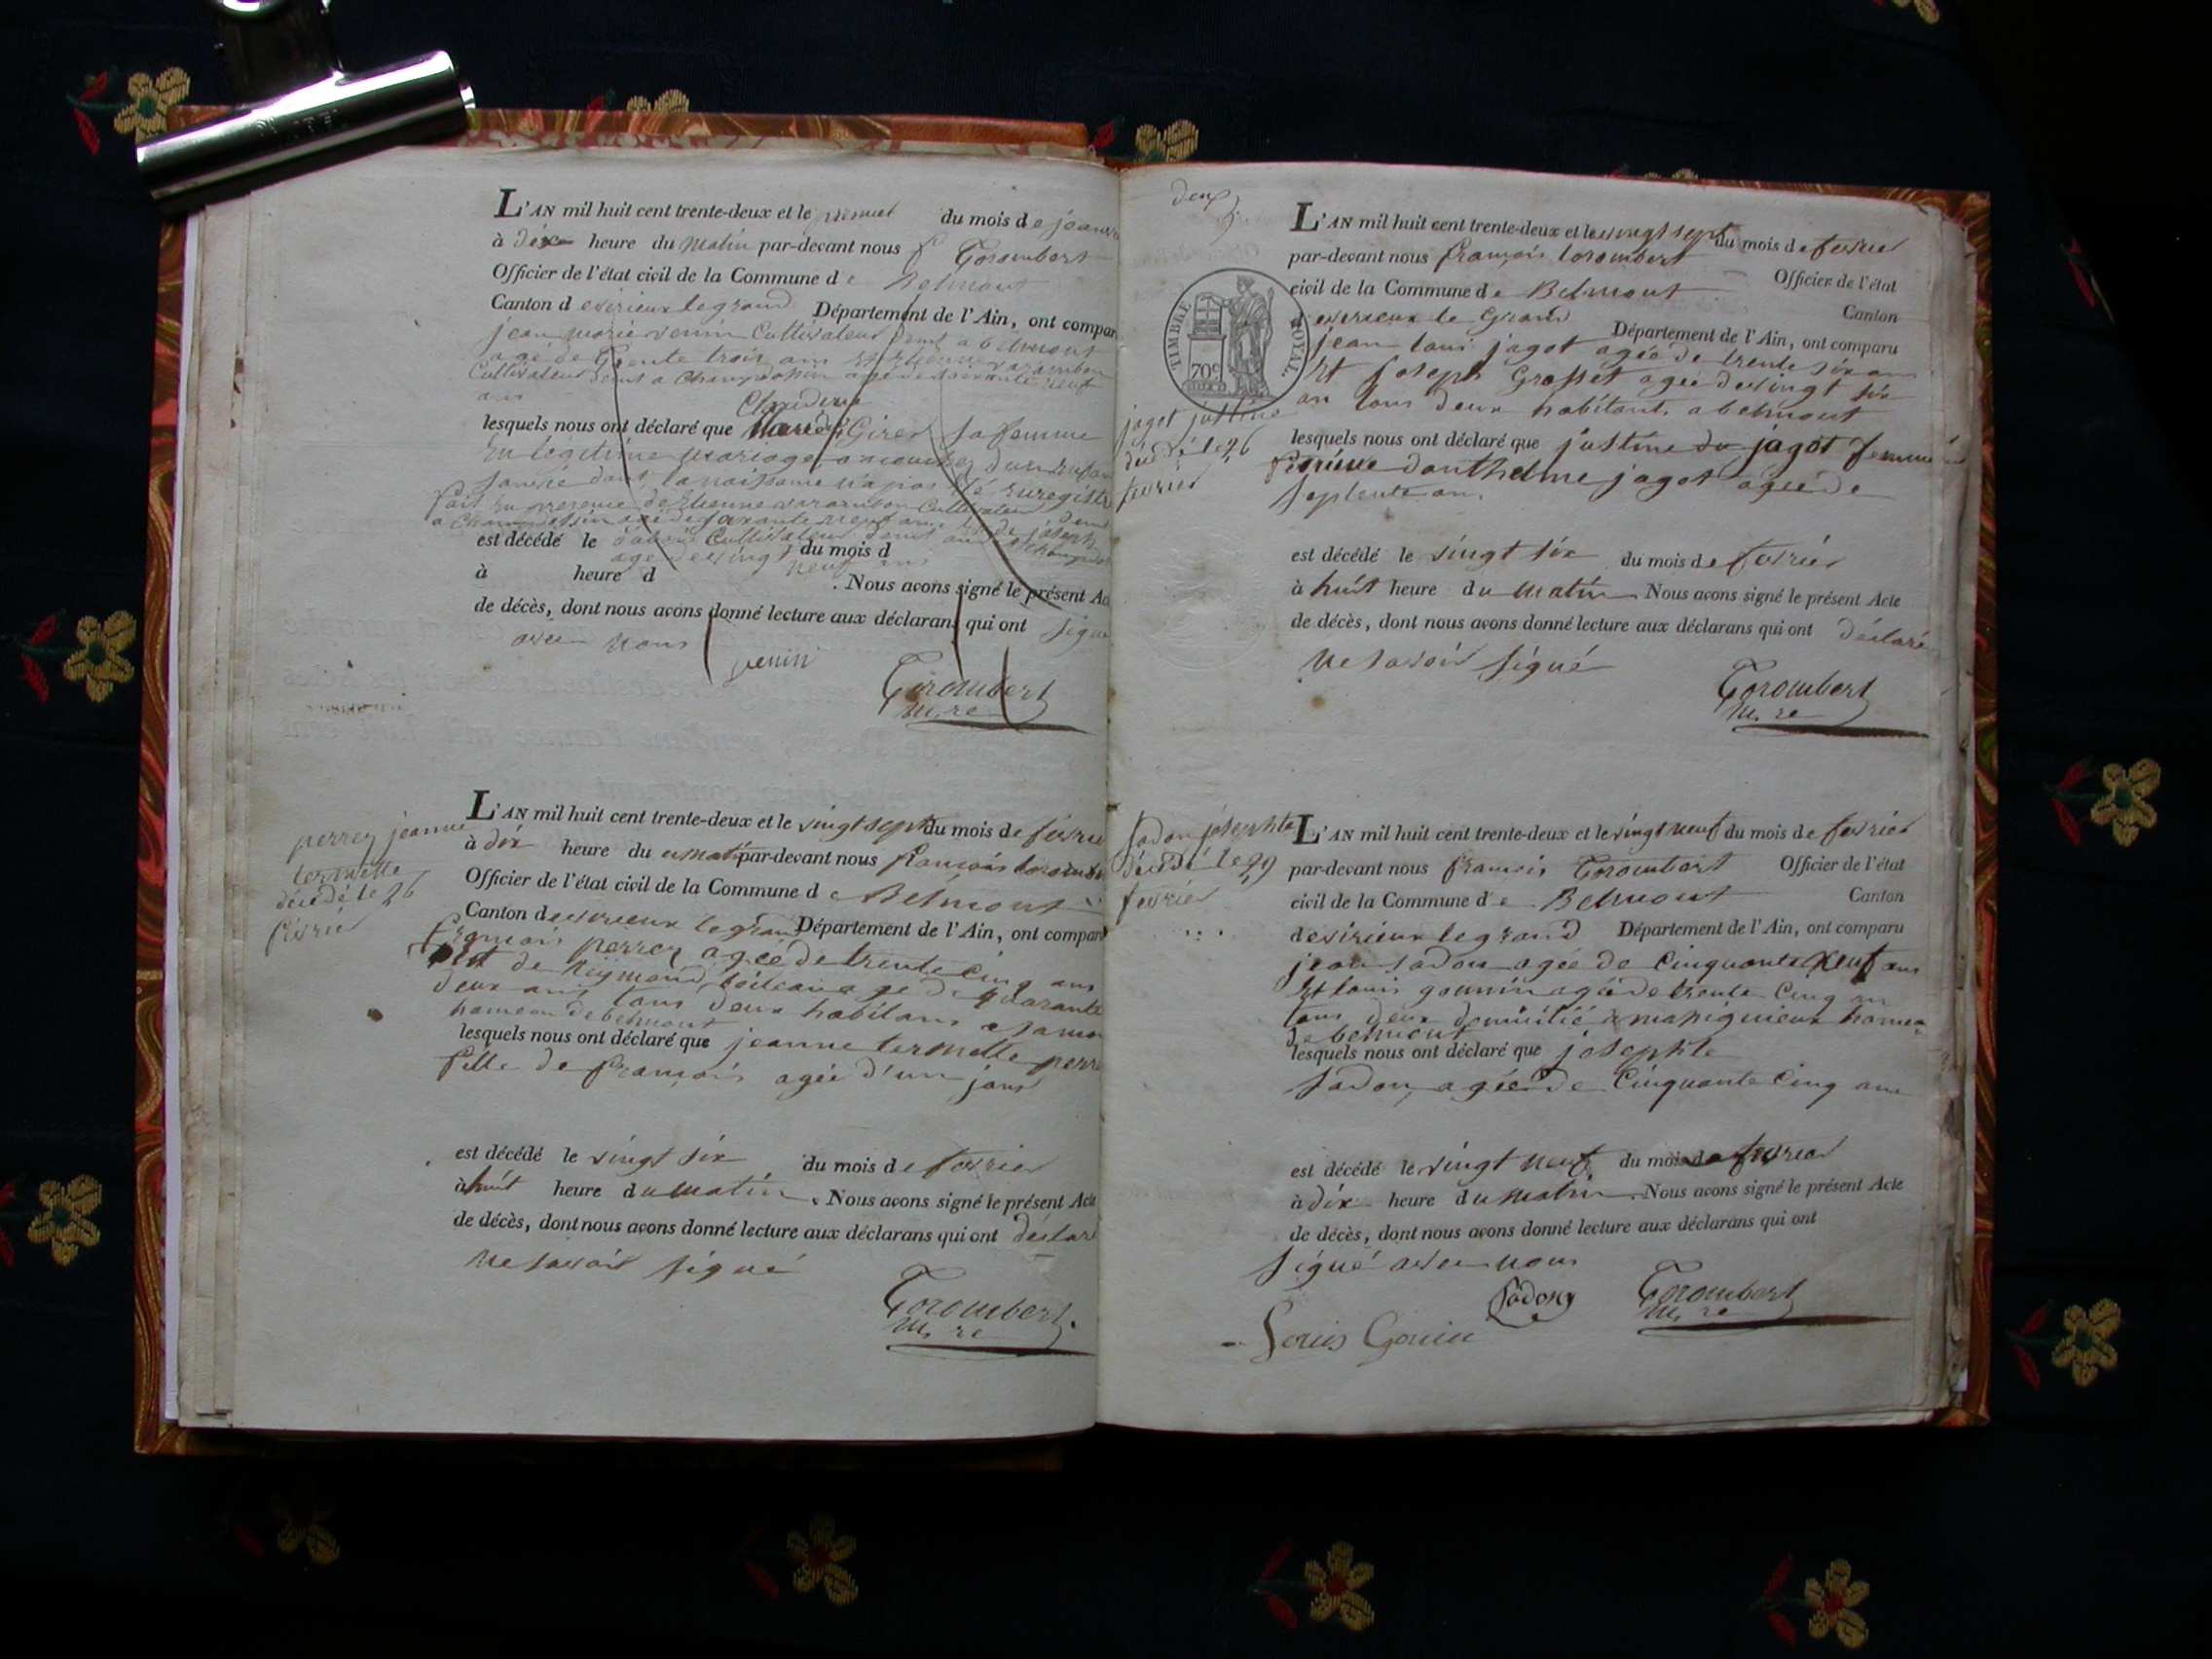 L'AN mil huit cent trente-deux et le premier du mois de
à dix heure du matin par-devant nous f Torombert
Officier de l'état civil de la Commune de Belmont
Canton de virieux le grand Département de l'Ain, ont compar
jean marie venin Cultivateur demt a belmont
agé de trente trois ans Et Etienne varambon
Cultivateur demt a Champdossin agé de soixante neuf
ans
Claudine
lesquels nous ont déclaré que Girer sa femme
En légitime mariage a accouchez d'un Enfan
sanvie dont la naissance n'a pas été Enregistre
fait En presence de Etienne varambon Cultivateur demt
a Champdossin agé de soixante neuf ans Et de joseph
est décédé le Cultivateur demt
du mois d
age de vingt neuf ans
à heure d . Nous avons signé le présent Ac
de décès, dont nous avons donné lecture aux déclarans qui ont signé
avec nous
venin
Torombert
mire
perrey jeanne
termette
décédé le 26
février
L'AN mil huit cent trente-deux et le vingt sept du mois de fevrie
à dix heure du matin par-devant nous françois torombe
Officier de l'état civil de la Commune de Belmont
Canton de virieux le grand Département de l'Ain, ont compar
françois perrey agée de trente cinq ans
Et de Reymond agé de quarante
deux ans tous deux habitans
hameau de belmont
lesquels nous ont déclaré que jeanne termette perre
fille de françois agée d'un jour
est décédé le vingt six du mois de fevrier
à huit heure du matin. Nous avons signé le présent Acte
de décès, dont nous avons donné lecture aux déclarans qui ont déclar
ne savoir signé
Torombert
mire
deux
TIMBRE ROYAL
70c
L'AN mil huit cent trente-deux et le vingt sept du mois de fevrier
par-devant nous françois torombert Officier de l'état
civil de la Commune de Belmont Canton
de virieux le Grand Département de l'Ain, ont comparu
jean loui jagot agée de trente six an
Et joseph Grosset agée de vingt six
an tous deux habitant a belmont
jagot justine
décédé le 26
fevrier
lesquels nous ont déclaré que justine du jagot femme
danthelme jagot agée de
septente an
est décédé le vingt six du mois de fevrier
à huit heure du matin. Nous avons signé le présent Acte
de décès, dont nous avons donné lecture aux déclarans qui ont déclaré
ne savoir signé
Torombert
mire
sadon josephte
décédé le 29
fevrier
L'AN mil huit cent trente-deux et le vingt neuf du mois de fevrier
par-devant nous francois Torombert Officier de l'état
civil de la Commune de Belmont Canton
de virieux le grand Département de l'Ain, ont comparu
jean sadon agée de cinquante neuf ans
Et louis gounin agée de trente cinq an
tous deux domicilié a massignieux hamea
de belmont
lesquels nous ont déclaré que josephte
sadon agée de cinquante cinq ans
est décédé le vingt neuf du mois de fevrier
à dix heure du matin. Nous avons signé le présent Acte
de décès, dont nous avons donné lecture aux déclarans qui ont
signé avec nous
Sadon
Torombert
mire
Louis Gonin